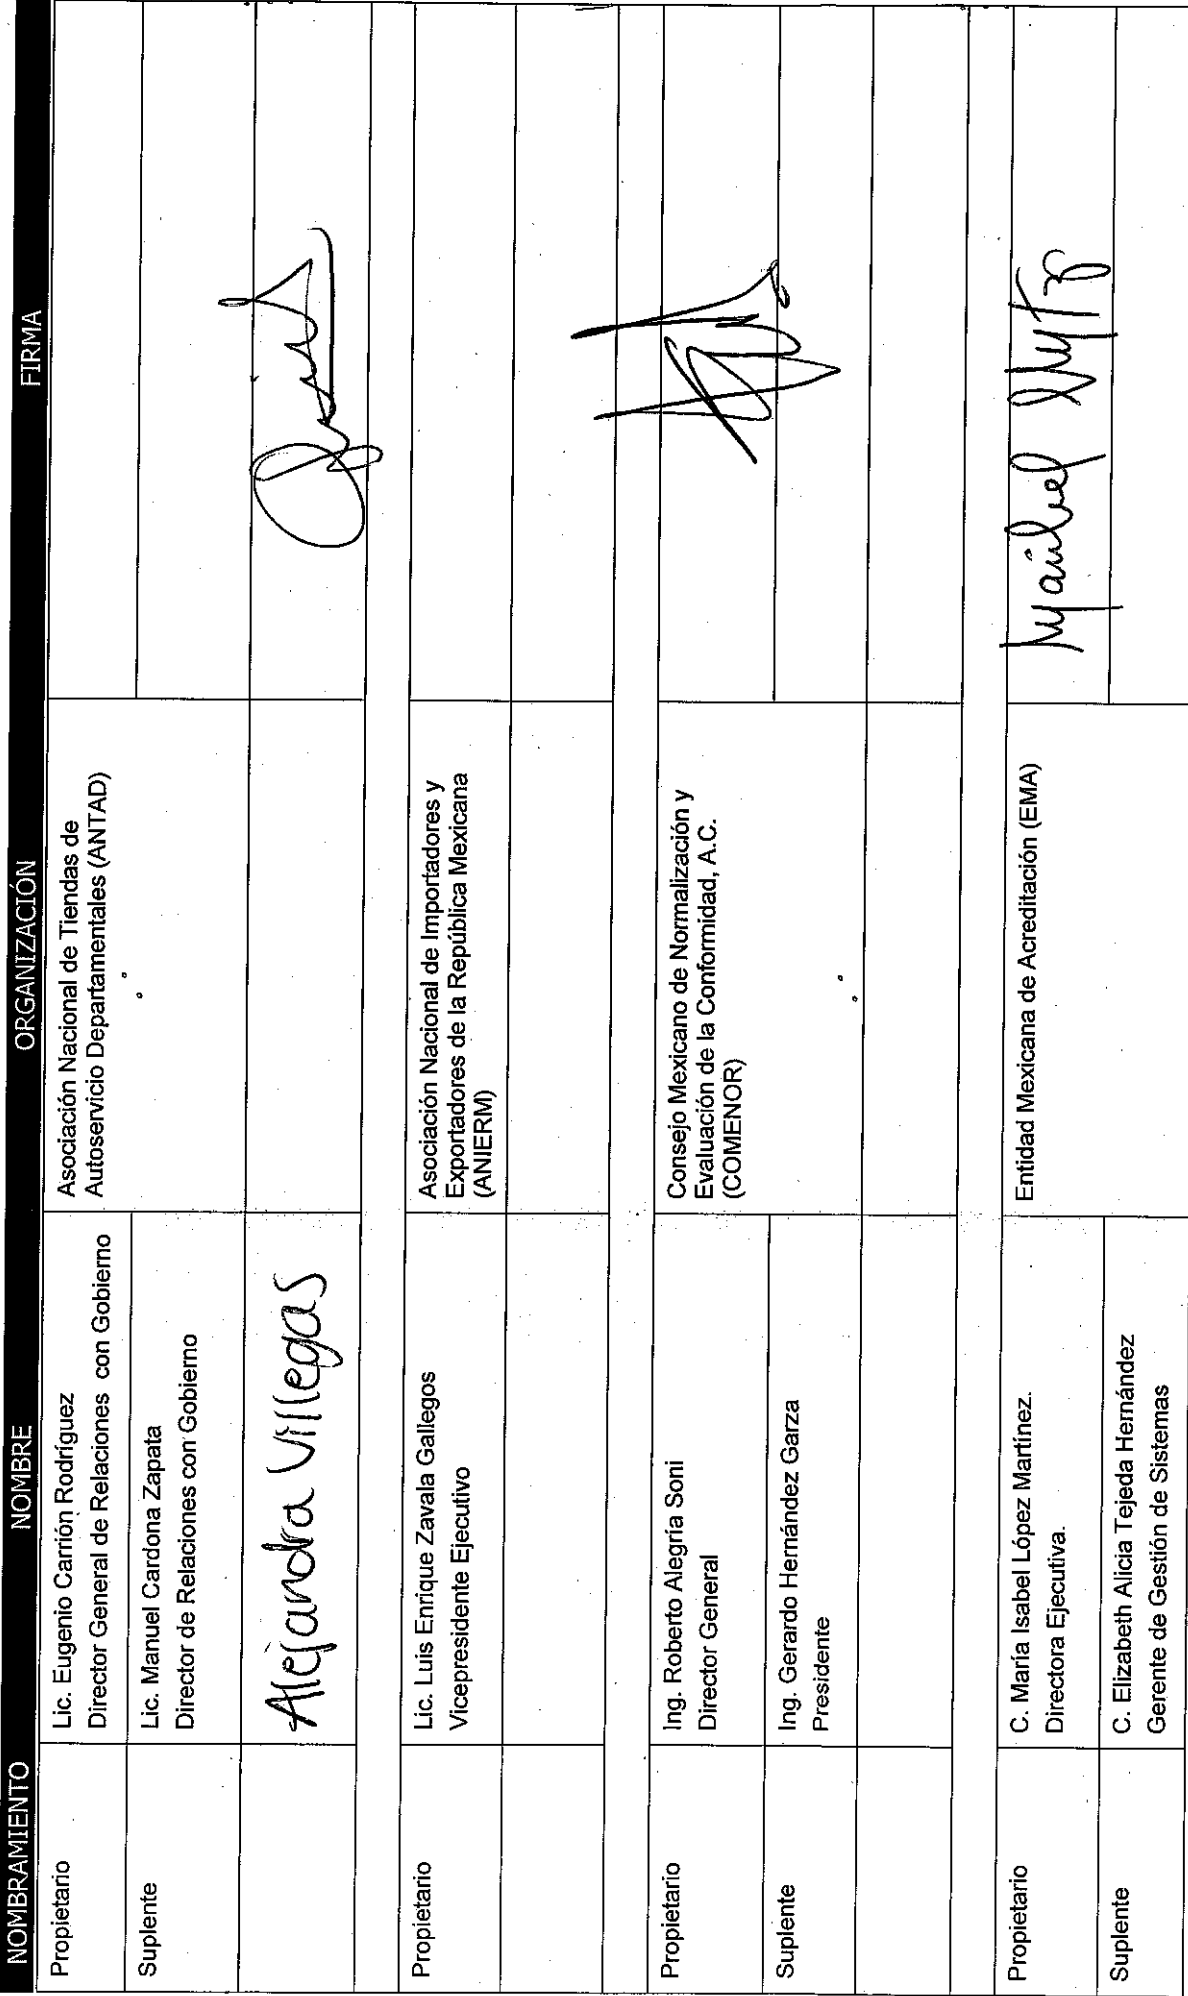 NOMBRAMIENTO NOMBRE ORGANIZACIÓN FIRMA
Propietario
Lic. Eugenio Carrión Rodríguez
Director General de Relaciones con Gobierno
Asociación Nacional de Tiendas de
Autoservicio Departamentales (ANTAD)
Suplente
Lic. Manuel Cardona Zapata
Director de Relaciones con Gobierno
Alejandra Villegas
Propietario
Lic. Luis Enrique Zavala Gallegos
Vicepresidente Ejecutivo
Asociación Nacional de Importadores y
Exportadores de la República Mexicana
(ANIERM)
Propietario
Ing. Roberto Alegría Soni
Director General
Consejo Mexicano de Normalización y
Evaluación de la Conformidad, A.C.
(COMENOR)
Suplente
Ing. Gerardo Hernández Garza
Presidente
Propietario
C. María Isabel López Martínez.
Directora Ejecutiva.
Entidad Mexicana de Acreditación (EMA)
Suplente
C. Elizabeth Alicia Tejeda Hernández
Gerente de Gestión de Sistemas